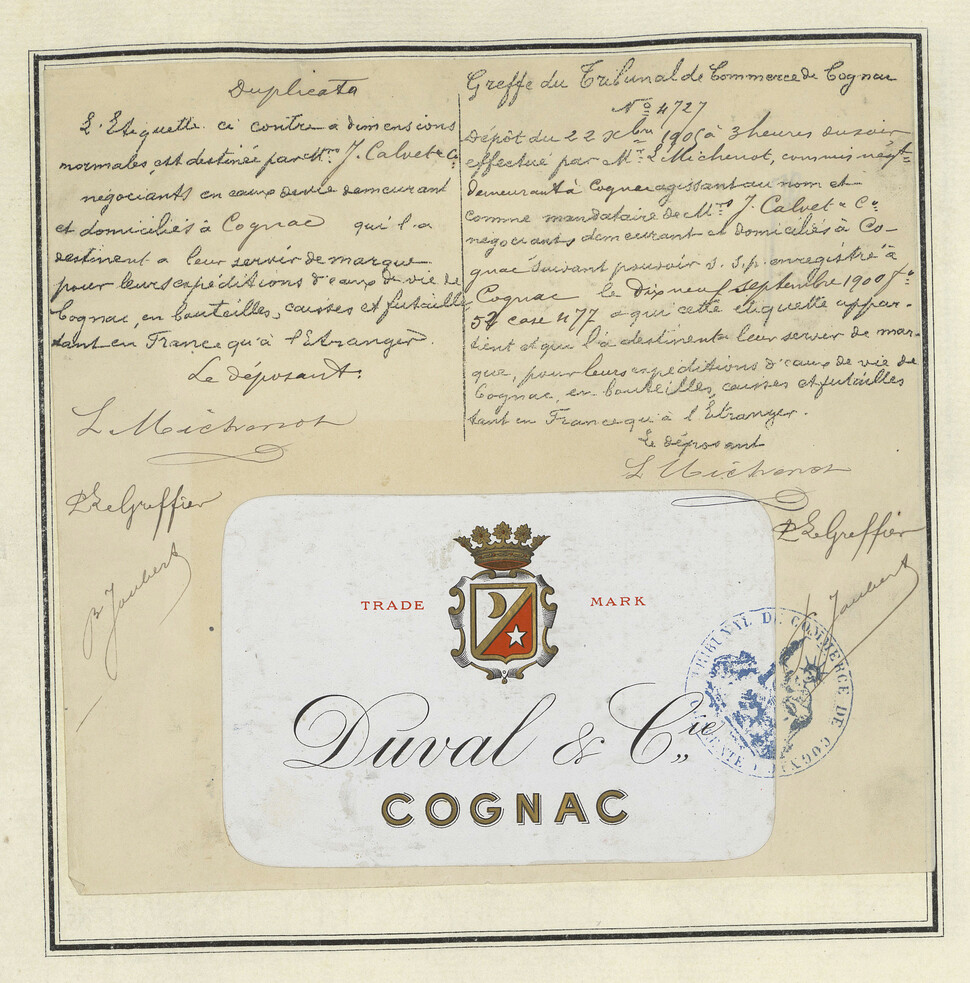 Duplicata
L'Etiquette ci contre a dimensions
normales, est destinée par Mrs J. Calvet & Co
négociants en eaux de vie demeurant
et domiciliés à Cognac qui l'a
destinent a leur servir de marque
pour leurs expéditions d'eaux de vie de
Cognac, en bouteilles, caisses et futailles
tant en France qu'à l'Etranger.
Le déposant:
L Michenot
P Le Greffier
B Joubert
Greffe du Tribunal de Commerce de Cognac
No 4727
Dépôt du 22 Xbre 1905 à 3 heures du soir
effectué par Mr L. Michenot, commis négt
demeurant à Cognac agissant au nom et
comme mandataire de Mrs J. Calvet & Co
négociants demeurant et domiciliés à Co-
gnac suivant pouvoir s. s.p. enregistré à
Cognac le dix neuf septembre 1900 fo
52 case 477 a qui cette étiquette appar-
tient et qui l'a destinent a leur servir de mar-
que, pour leurs expéditions d'eaux de vie de
Cognac, en bouteilles, caisses et futailles
tant en France qu'à l'Etranger.
Le déposant
L Michenot
P Le Greffier
Joubert
TRADE MARK
Duval & Cie
COGNAC
TRIBUNAL DE COMMERCE DE COGNAC